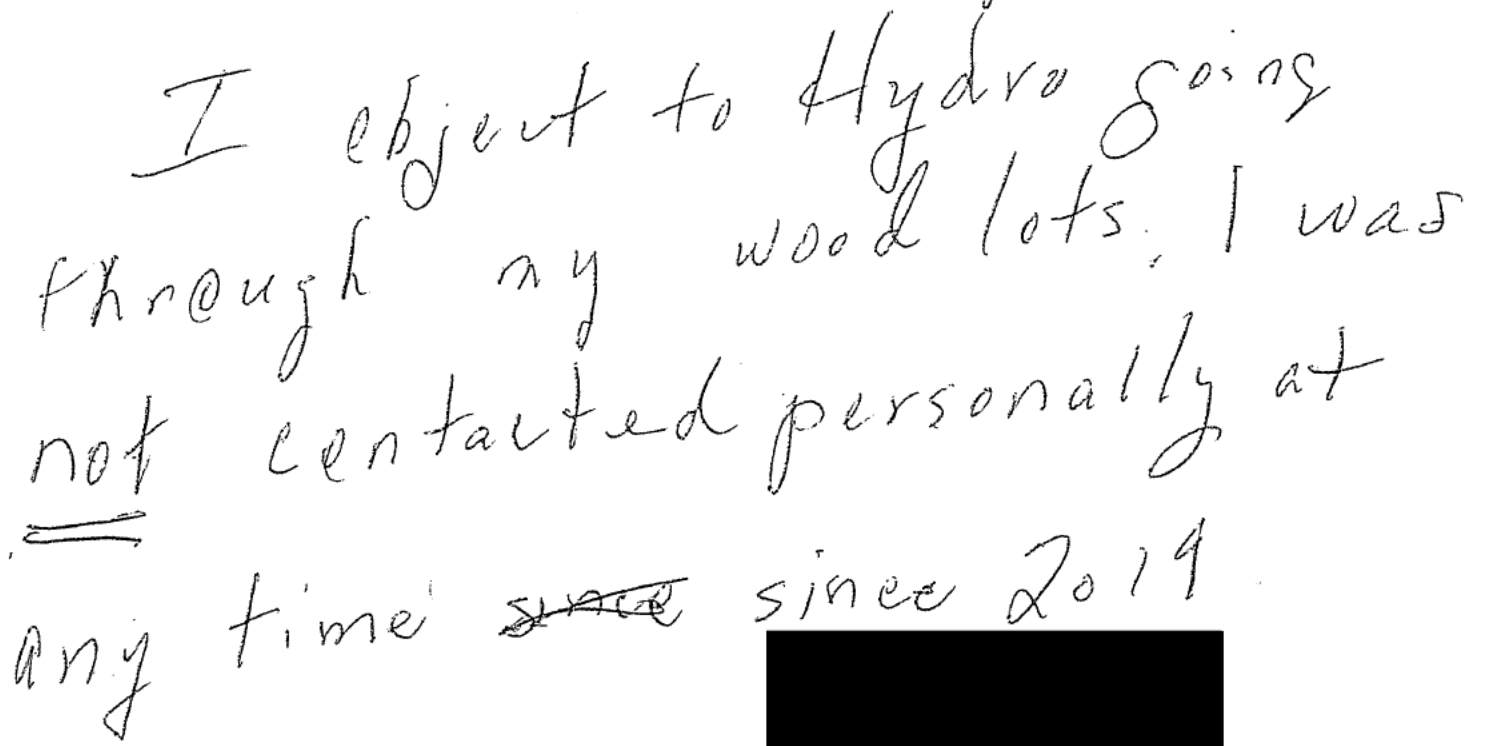 I object to Hydro going
through my wood lots. I was
not contacted personally at
any time since since 2019